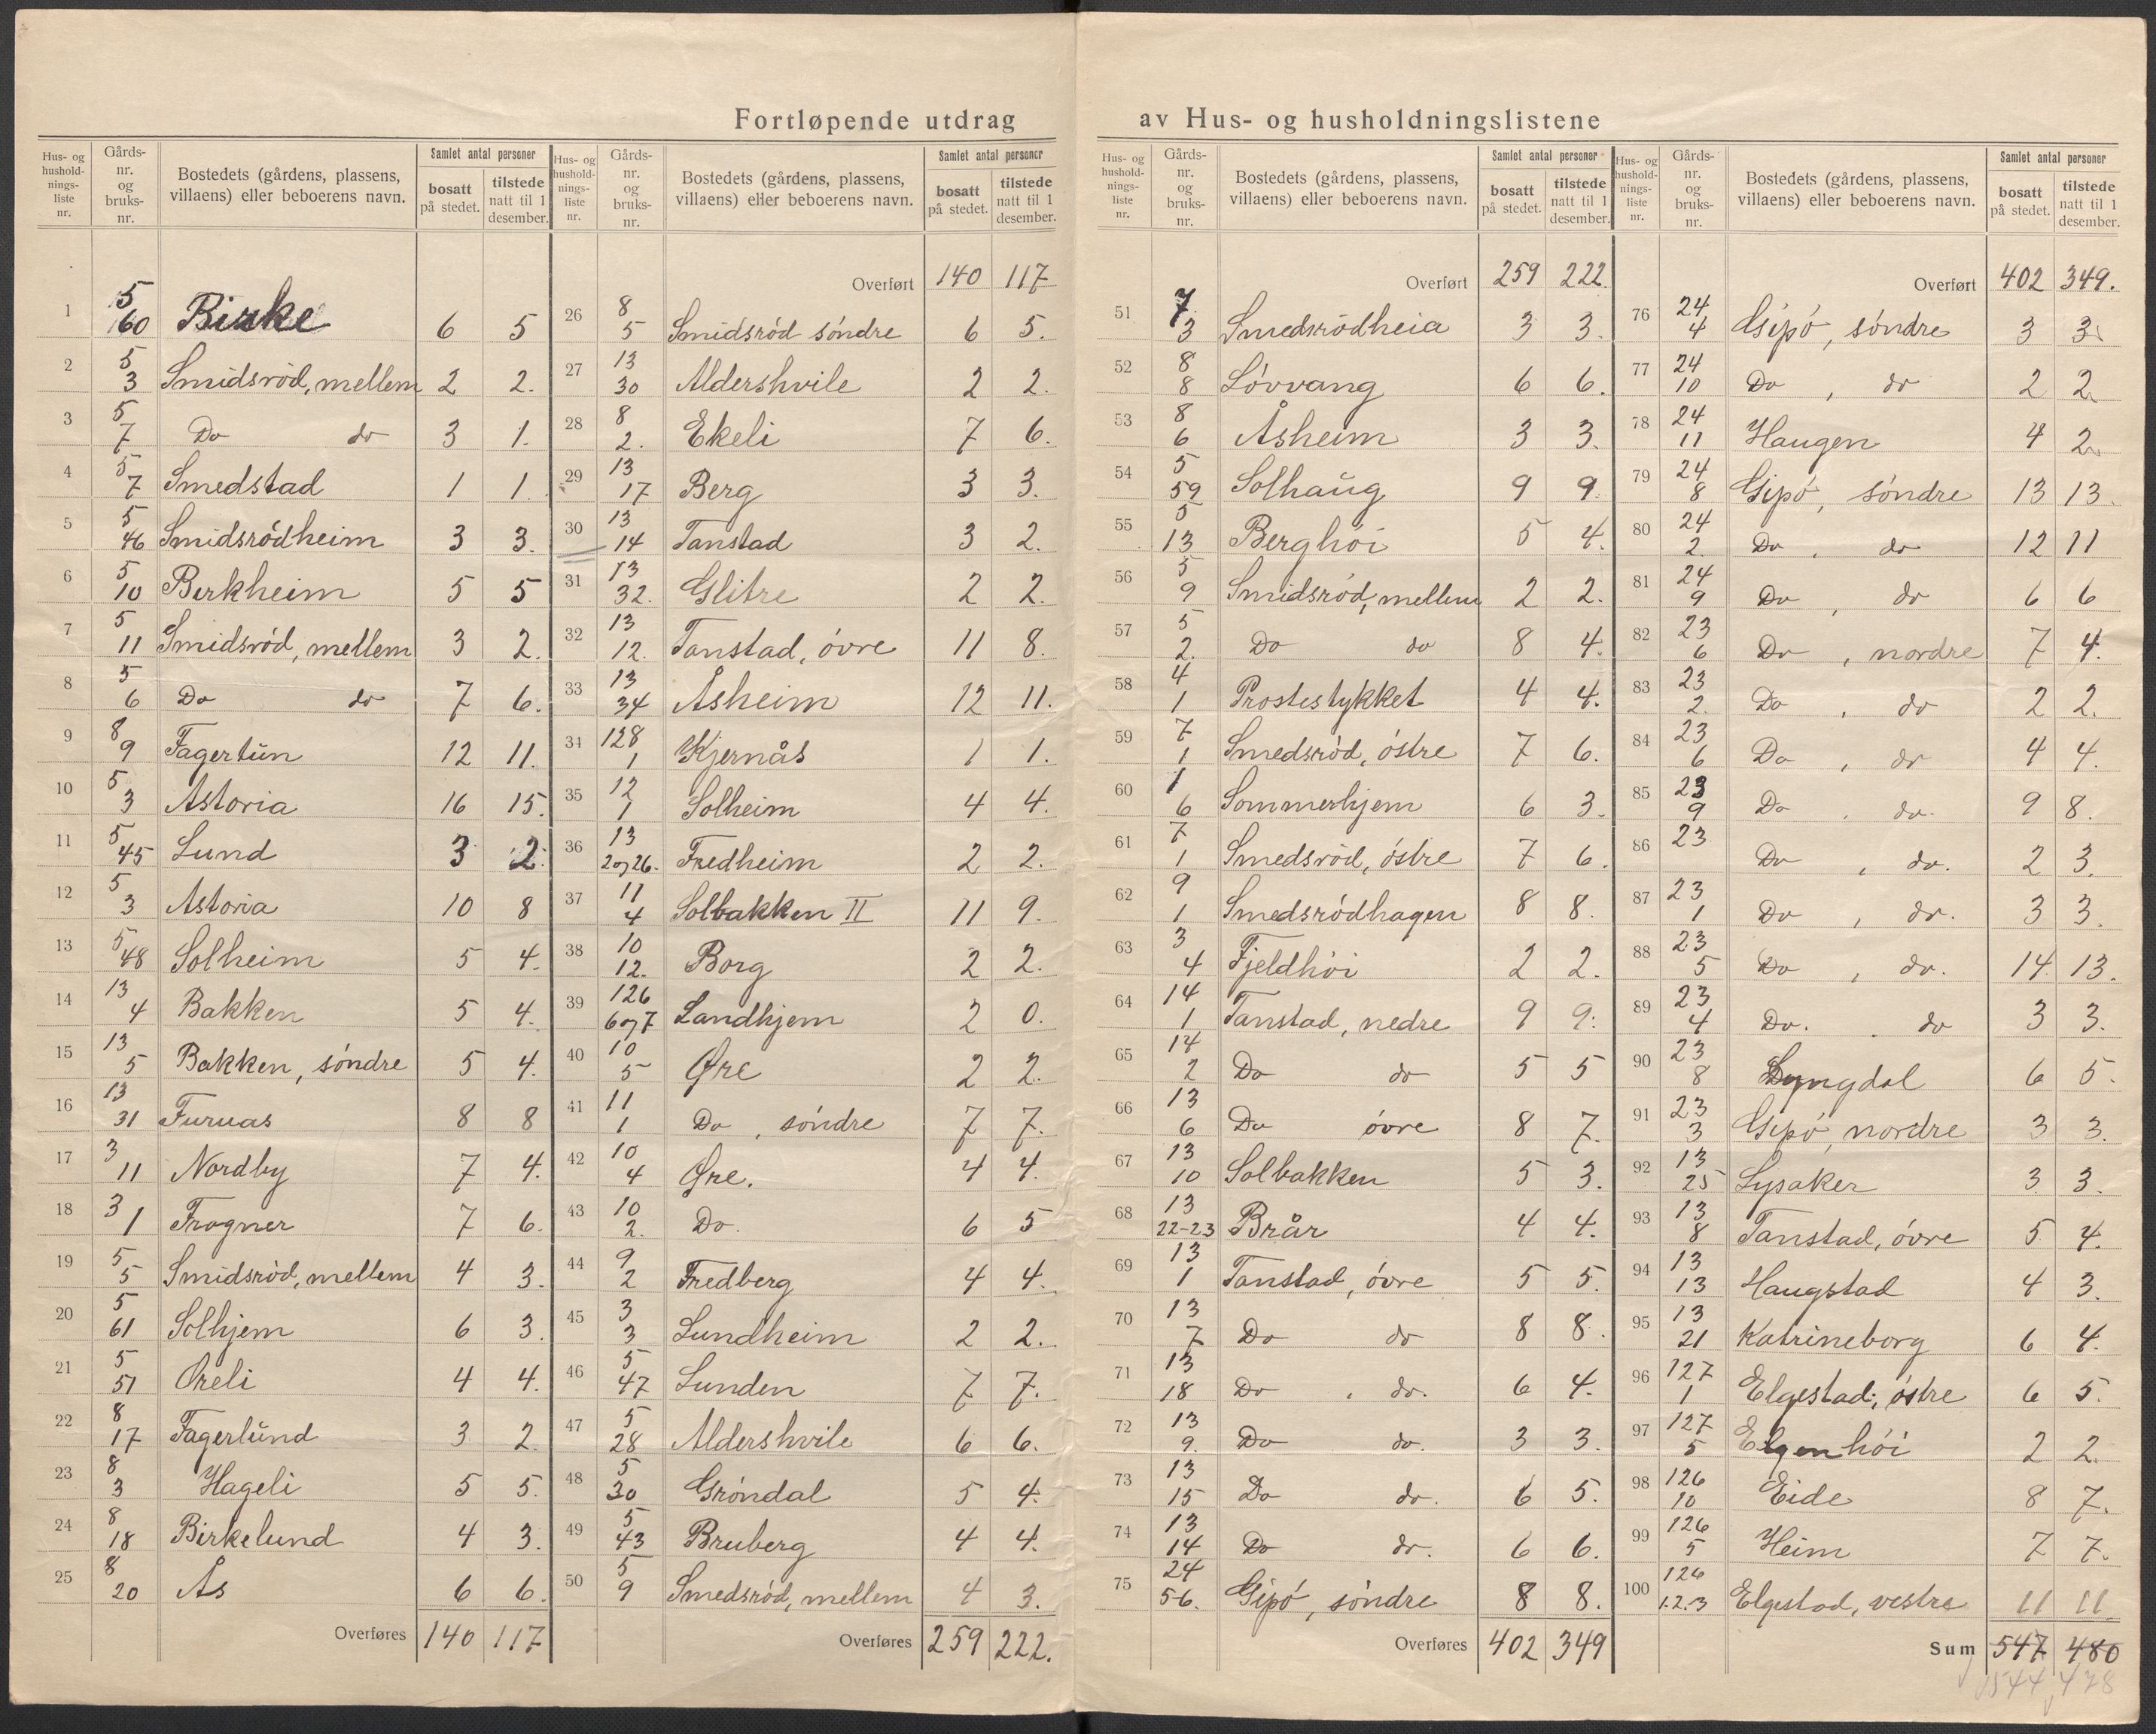 Fortløpende utdrag av Hus- og husholdningslistene
Hus- og husholdningsliste nr. | Gårds-nr. og bruks-nr. | Bostedets (gårdens, plassens, villaens) eller beboerens navn. | Samlet antal personer: bosatt på stedet. | tilstede natt til 1 desember.
1 | 5 60 | Birke | 6 | 5
2 | 5 3 | Smidsröd, mellem | 2 | 2.
3 | 5 7 | Do do | 3 | 1.
4 | 5 7 | Smedstad | 1 | 1.
5 | 5 46 | Smidsrödheim | 3 | 3.
6 | 5 10 | Berkheim | 5 | 5
7 | 5 11 | Smidsröd, mellem | 3 | 2.
8 | 5 6 | Do do | 7 | 6.
9 | 8 9 | Fagertun | 12 | 11.
10 | 5 3 | Astoria | 16 | 15.
11 | 5 45 | Lund | 3 | 2.
12 | 5 3 | Astoria | 10 | 8
13 | 5 48 | Solheim | 5 | 4.
14 | 13 4 | Bakken | 5 | 4.
15 | 13 5 | Bakken, söndre | 5 | 4.
16 | 13 31 | Furuas | 8 | 8
17 | 3 11 | Nordby | 7 | 4.
18 | 3 1 | Frogner | 7 | 6.
19 | 5 5 | Smidsröd, mellem | 4 | 3.
20 | 5 61 | Solhjem | 6 | 3.
21 | 5 51 | Oreli | 4 | 4.
22 | 8 17 | Fagerlund | 3 | 2.
23 | 8 3 | Hageli | 5 | 5.
24 | 8 18 | Birkelund | 4 | 3.
25 | 8 20 | Ås | 6 | 6.
Overføres 140 117
Hus- og husholdningsliste nr. | Gårds-nr. og bruks-nr. | Bostedets (gårdens, plassens, villaens) eller beboerens navn. | Samlet antal personer: bosatt på stedet. | tilstede natt til 1 desember.
Overført 140 117
26 | 8 5 | Smidsröd söndre | 6 | 5.
27 | 13 30 | Aldershvile | 2 | 2.
28 | 8 2. | Ekeli | 7 | 6.
29 | 13 17 | Berg | 3 | 3.
30 | 13 14 | Tanstad | 3 | 2.
31 | 13 32. | Glitre | 2 | 2.
32 | 13 12. | Tanstad, övre | 11 | 8.
33 | 13 34 | Åsheim | 12 | 11.
34 | 128 1 | Kjernås | 1 | 1.
35 | 12 1 | Solheim | 4 | 4.
36 | 13 2 og 26. | Fredheim | 2 | 2.
37 | 11 4 | Solbakken II | 11 | 9.
38 | 10 12. | Borg | 2 | 2.
39 | 126 6 og 7 | Landhjem | 2 | 0.
40 | 10 5 | Øre | 2 | 2.
41 | 11 1 | Do, söndre | 7 | 7.
42 | 10 4 | Øre. | 4 | 4.
43 | 10 2. | Do. | 6 | 5
44 | 9 2 | Fredberg | 4 | 4.
45 | 3 3 | Lundheim | 2 | 2.
46 | 5 47 | Lunden | 7 | 7.
47 | 5 28 | Aldershvile | 6 | 6.
48 | 5 30 | Gröndal | 5 | 4.
49 | 5 43 | Bruberg | 4 | 4.
50 | 5 9 | Smedsröd, mellem | 4 | 3.
Overføres 259 222.
Hus- og husholdningsliste nr. | Gårds-nr. og bruks-nr. | Bostedets (gårdens, plassens, villaens) eller beboerens navn. | Samlet antal personer: bosatt på stedet. | tilstede natt til 1 desember.
Overført 259 222
51 | 7 3 | Smedsrödheia | 3 | 3.
52 | 8 8 | Lövvang | 6 | 6.
53 | 8 6 | Åsheim | 3 | 3.
54 | 5 59 | Solhaug | 9 | 9.
55 | 5 13 | Berghöi | 5 | 4.
56 | 5 9 | Smidsröd, mellem | 2 | 2.
57 | 5 2. | Do do | 8 | 4.
58 | 4 1 | Prostestykket | 4 | 4.
59 | 7 1 | Smedsröd, östre | 7 | 6.
60 | 1 6 | Sommerhjem | 6 | 3.
61 | 7 1 | Smedsröd, östre | 7 | 6.
62 | 9 1 | Smedsrödhagen | 8 | 8.
63 | 3 4 | Fjeldhöi | 2 | 2.
64 | 14 1 | Tanstad, nedre | 9 | 9.
65 | 14 2 | Do do | 5 | 5
66 | 13 6 | Do övre | 8 | 7.
67 | 13 10 | Solbakken | 5 | 3.
68 | 13 22-23 | Brår | 4 | 4.
69 | 13 1 | Tanstad, övre | 5 | 5.
70 | 13 7 | Do do | 8 | 8.
71 | 13 18 | Do, do. | 6 | 4.
72 | 13 9. | Do do. | 3 | 3.
73 | 13 15 | Do do. | 6 | 5.
74 | 13 14 | Do do. | 6 | 6.
75 | 24 5-6. | Gipö, söndre | 8 | 8.
Overføres 402 349
Hus- og husholdningsliste nr. | Gårds-nr. og bruks-nr. | Bostedets (gårdens, plassens, villaens) eller beboerens navn. | Samlet antal personer: bosatt på stedet. | tilstede natt til 1 desember.
Overført 402 349.
76 | 24 4 | Gipö, söndre | 3 | 3.
77 | 24 10 | Do, do | 2 | 2.
78 | 24 11 | Haugen | 4 | 2.
79 | 24 8 | Gipö, söndre | 13 | 13.
80 | 24 2. | Do, do | 12 | 11
81 | 24 9 | Do, do | 6 | 6
82 | 23 6 | Do, nordre | 7 | 4.
83 | 23 2. | Do, do | 2 | 2.
84 | 23 6 | Do, do | 4 | 4.
85 | 23 9 | Do. do. | 9 | 8.
86 | 23 | Do, do. | 2 | 3.
87 | 23 1 | Do, do. | 3 | 3.
88 | 23 5 | Do, do. | 14 | 13.
89 | 23 4 | Do. do | 3 | 3.
90 | 23 8 | Lyngdal | 6 | 5.
91 | 23 3 | Gipö, nordre | 3 | 3.
92 | 13 25 | Lysaker | 3 | 3.
93 | 13 8 | Tanstad, övre | 5 | 4.
94 | 13 13 | Haugstad | 4 | 3.
95 | 13 21 | Katrineborg | 6 | 4.
96 | 127 1 | Elgestad, östre | 6 | 5.
97 | 127 5 | Elgenhöi | 2 | 2.
98 | 126 10 | Eide | 8 | 7.
99 | 126 5 | Heim | 7 | 7.
100 | 126 1.2.3 | Elgestad, vestre | 11 | 11.
Sum 547 480
544 478